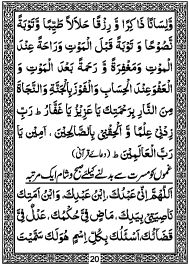 وَّلِسَانًا ذَاكِرًا وَّ رِزْقًا حَلَالًا طَيِّبًا وَّتَوْبَةً
نَّصُوْحًا وَّ تَوْبَةً قَبْلَ الْمَوْتِ وَرَاحَةً عِنْدَ
الْمَوْتِ وَمَغْفِرَةً وَّ رَحْمَةً بَعْدَ الْمَوْتِ وَ
الْعَفْوَعِنْدَ الْحِسَابِ وَالْفَوْزَبِالْجَنَّةِ وَالنَّجَاةَ
مِنَ النَّارِ بِرَحْمَتِكَ يَا عَزِيْزُ يَا غَفَّارُ ط رَبِّ
زِدْنِيْ عِلْمًا وَّ اَلْحِقْنِيْ بِالصَّالِحِيْنَ ، اٰمِيْنَ يَا
رَبَّ الْعَالَمِيْنَ ط (دعائے قرآنی)
غموں کو مسرت سے بدلنے کیلئے صبح و شام ایک مرتبہ
اَللّٰهُمَّ اِنِّيْ عَبْدُكَ، اِبْنُ عَبْدِكَ، وَابْنُ اَمَتِكَ
نَاصِيَتِيْ بِيَدِكَ، مَاضٍ فِيَّ حُكْمُكَ، عَدْلٌ فِيَّ
قَضَائُكَ اَسْئَلُكَ بِكُلِّ اِسْمٍ هُوَلَكَ سَمَّيْتَ
20